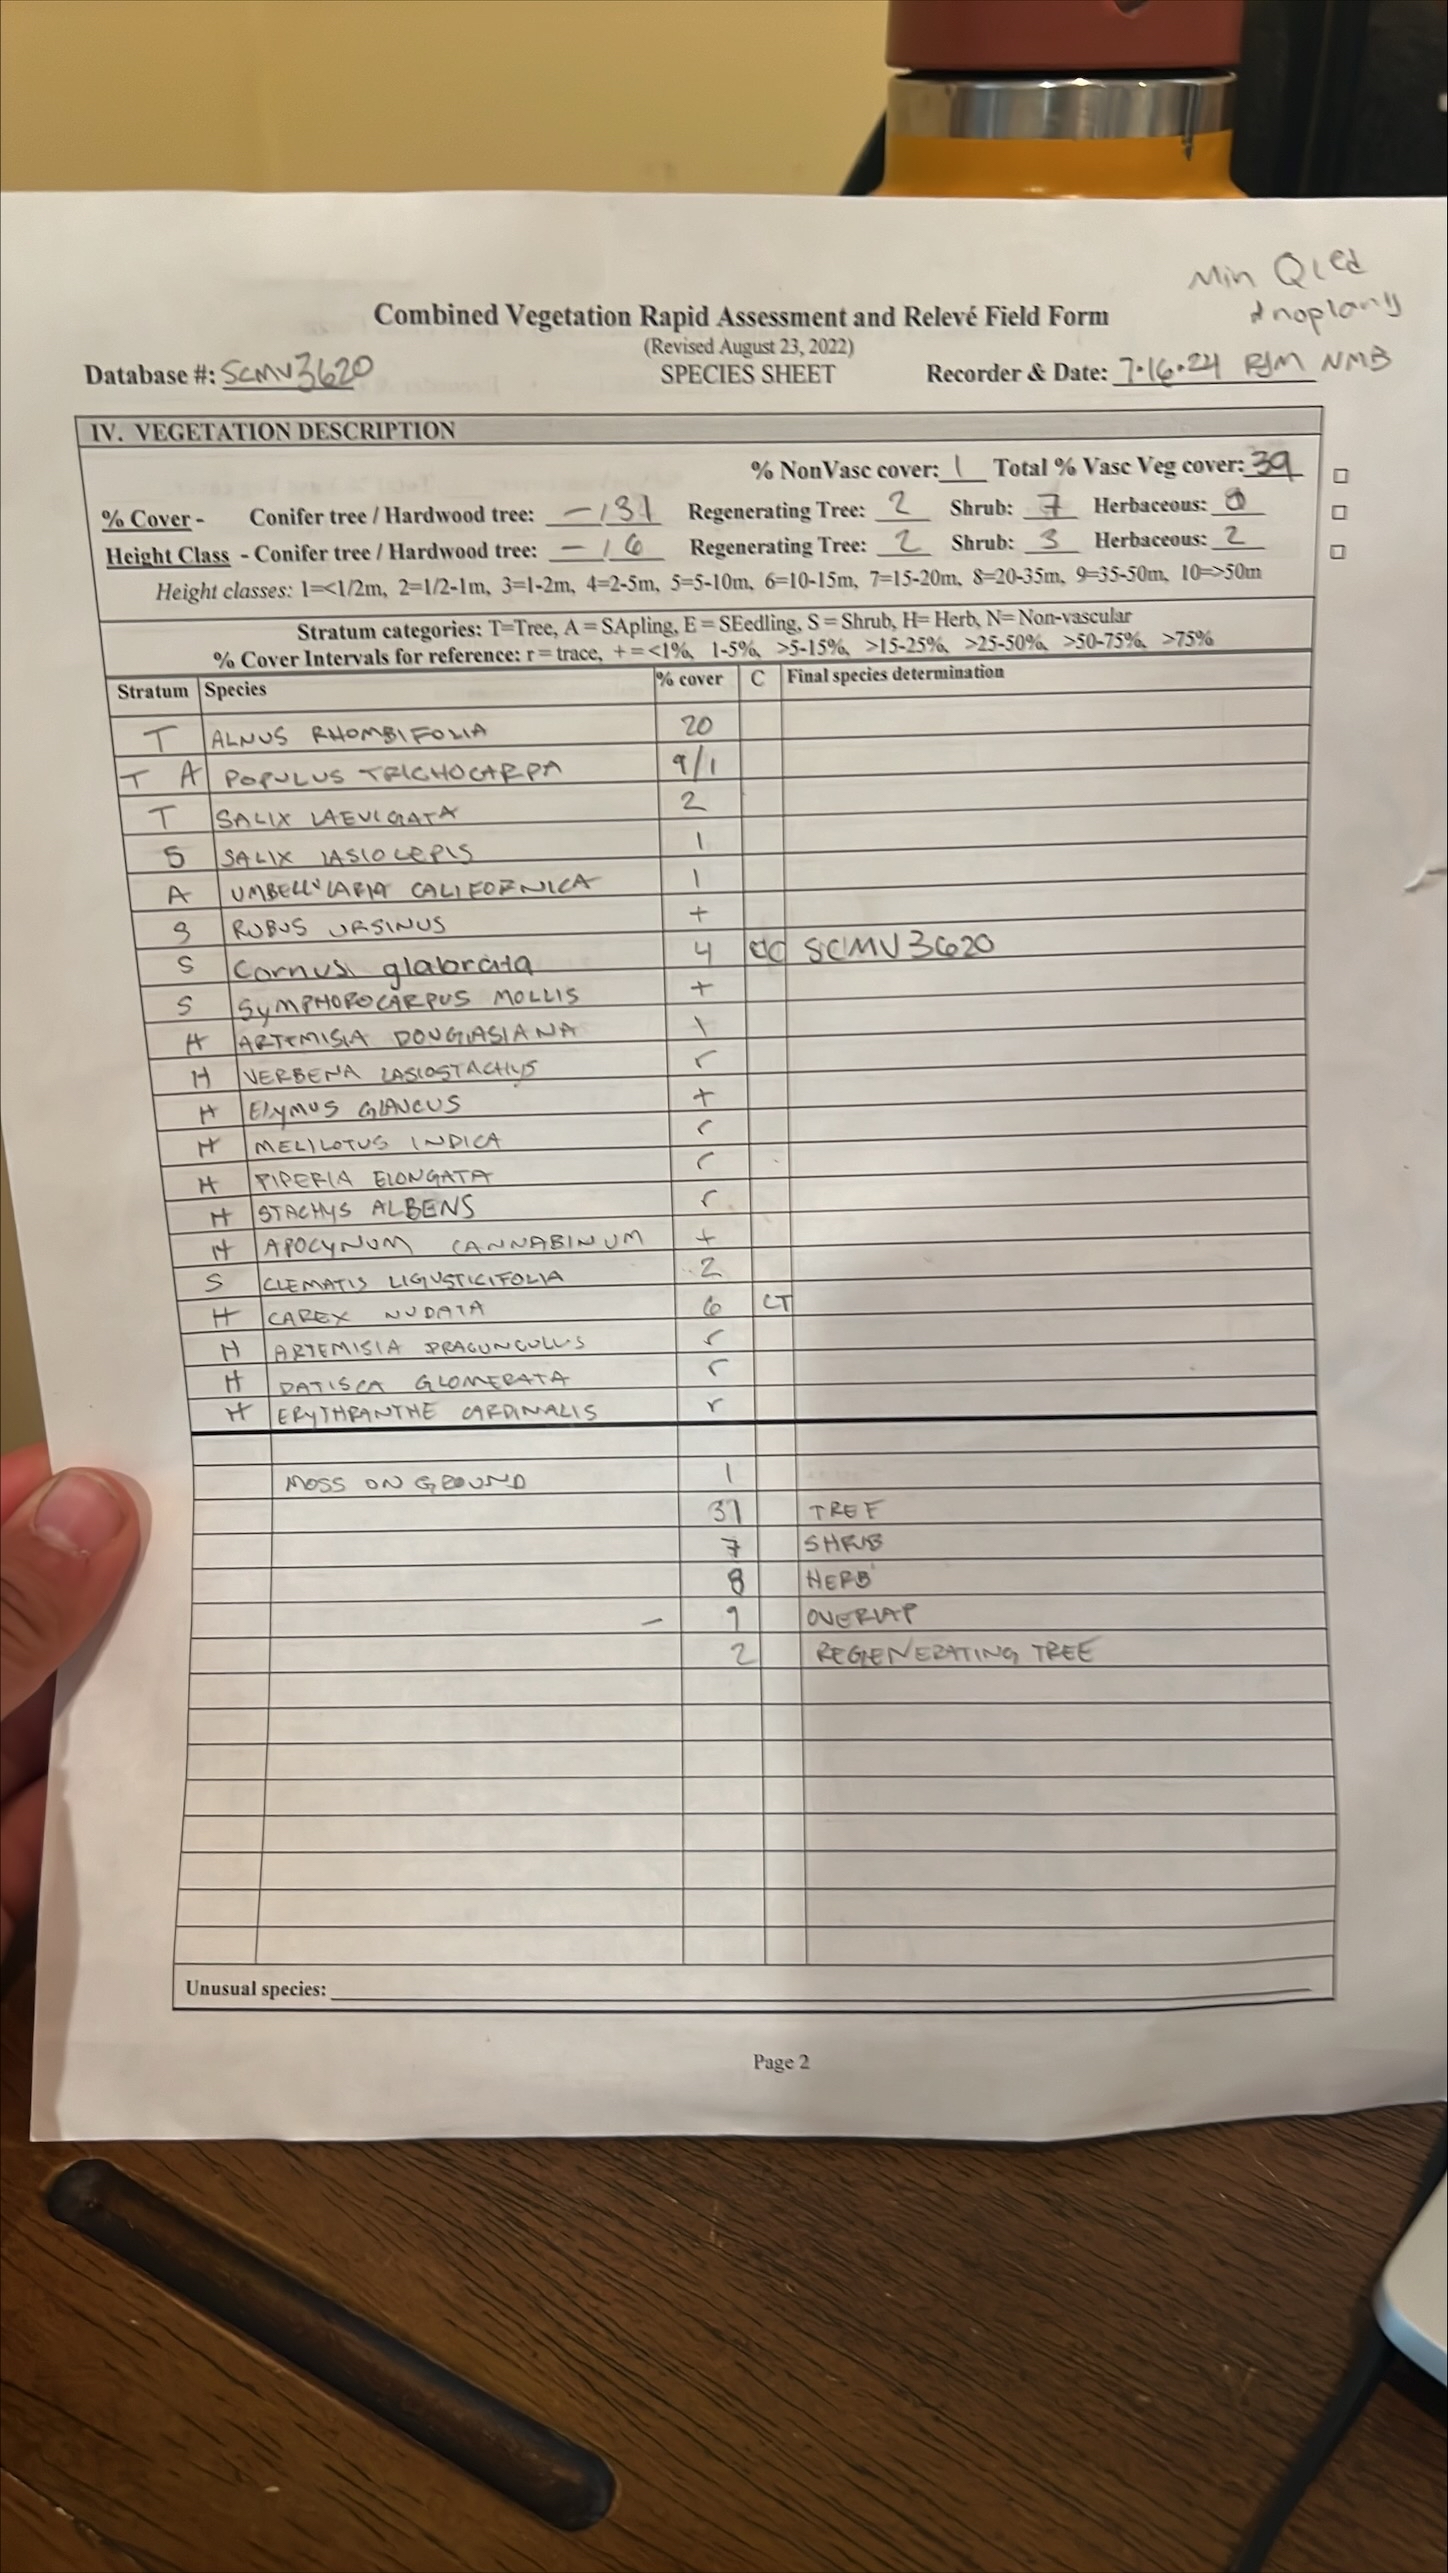 Min QCed
& noplants
Combined Vegetation Rapid Assessment and Relevé Field Form
(Revised August 23, 2022)
Database #: SCMV3620 SPECIES SHEET Recorder & Date: 7.16.24 RJM NMB
IV. VEGETATION DESCRIPTION
% NonVasc cover: 1 Total % Vasc Veg cover: 39
% Cover - Conifer tree / Hardwood tree: - / 31 Regenerating Tree: 2 Shrub: 7 Herbaceous: 8
Height Class - Conifer tree / Hardwood tree: - / 6 Regenerating Tree: 2 Shrub: 3 Herbaceous: 2
Height classes: 1=<1/2m, 2=1/2-1m, 3=1-2m, 4=2-5m, 5=5-10m, 6=10-15m, 7=15-20m, 8=20-35m, 9=35-50m, 10=>50m
Stratum categories: T=Tree, A = SApling, E = SEedling, S = Shrub, H= Herb, N= Non-vascular
% Cover Intervals for reference: r = trace, + = <1%, 1-5%, >5-15%, >15-25%, >25-50%, >50-75%, >75%
Stratum Species % cover C Final species determination
T ALNUS RHOMBIFOLIA 20
T A POPULUS TRICHOCARPA 9/1
T SALIX LAEVIGATA 2
S SALIX LASIOLEPIS 1
A UMBELLULARIA CALIFORNICA 1
S RUBUS URSINUS +
S Cornus glabrata 4 SCMV3620
S SYMPHOROCARPUS MOLLIS +
H ARTEMISIA DOUGLASIANA 1
H VERBENA LASIOSTACHYS r
H ELYMUS GLAUCUS +
H MELILOTUS INDICA r
H PIPERIA ELONGATA r
H STACHYS ALBENS r
H APOCYNUM CANNABINUM +
S CLEMATIS LIGUSTICIFOLIA 2
H CAREX NUDATA 6 CT
H ARTEMISIA DRACUNCULUS r
H DATISCA GLOMERATA r
H ERYTHRANTHE CARDINALIS r
MOSS ON GROUND 1
31 TREE
7 SHRUB
8 HERB
- 9 OVERLAP
2 REGENERATING TREE
Unusual species:
Page 2